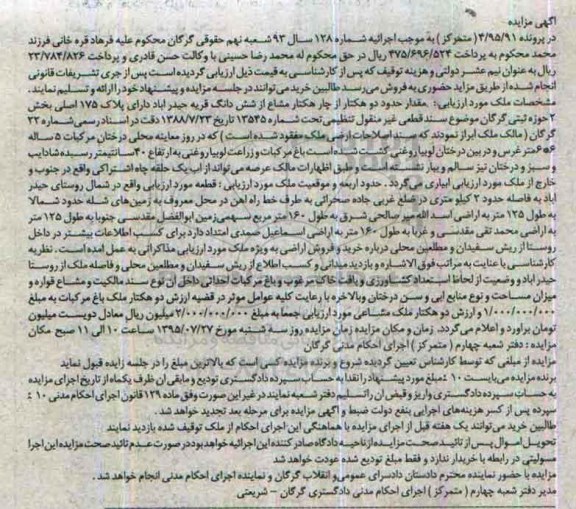 آگهی مزایده
در پرونده ۴/۹۵/۹۱ ( متمرکز ) به موجب اجرائیه شماره ۱۲۸ سال ۹۳ شعبه نهم حقوقی گرگان محکوم علیه فرهاد قره خانی فرزند
محمد محکوم به پرداخت ۳۷۵/۶۹۶/۵۲۴ ریال در حق محکوم له محمد رضا حسینی با وکالت حسن قادری و پرداخت ۲۳/۷۸۴/۸۲۶
ریال به عنوان نیم عشر دولتی و هزینه توقیف که پس از کارشناسی به قیمت ذیل ارزیابی گردیده است پس از جری تشریفات قانونی
انجام شده از طریق مزاید حضوری به فروش می‌رسد طالبین خرید می توانند در جلسه مزایده و پیشنهاد خود را ارائه و تسلیم نمایند .
مشخصات ملک مورد ارزیابی : مقدار حدود دو هکتار از چار هکتار مشاع از شش دانگ قریه حیدر اباد دارای پلاک ۱۷۵ اصلی بخش
۲ حوزه ثبتی گرگان موضوع سند قطعی غیر منقول تنظیمی تحت شماره ۱۳۵۴۵ تاریخ ۱۳۸۸/۷/۲۳ دقت در اسناد رسمی شماره ۲۲
گرگان ( مالک ملک ابراز نمودند که سند اصلاحات ارضی ملک مفقود شده است ) که در روز معاینه محلی درختان مرکبات ۵ ساله
۶*۵ متر غرس و در بین درختان لوبیا روغنی کشت شده است باغ مرکبات و زراعت لوبیا روغنی به ارتفاع ۴۰ سانتیمتر رسیده شادایب
و سبز و درختان نیز سالم و بیار نشسته است و طبق اظهارات مالک عرصه می‌تواند از آب یک حلقه چاه اشتراکی واقع در جنوب و
خارج از ملک مورد ارزیابی ابیاری می‌گردد . حدود اربعه و موقعیت ملک مورد ارزیابی : قطعه مورد ارزیابی واقع در شمال روستای حیدر
آباد به فاصله حدود ۲ کیلو متری در ضلع غربی جاده صحرائی به طرف خط راه اهن در محل معروف به زمین های شله حدود شمالا
به طول ۱۲۵ متر به اراضی اسد الله میر صالحی شرق به طول ۱۶۰ متر مربع سهمی زمین ابوالفضل مقدسی جنوبا به طول ۱۲۵ متر
به اراضی محمد تقی مقدسی و غربا به طول ۱۶۰ متر به اراضی اسماعیل صمدی امتداد دارد برای کسب اطلاعات بیشتر در داخل
روستا از ریش سفیدان و مطلعین محلی درباره خرید و فروش اراضی به ویژه ملک مورد ارزیابی مذاکراتی به عمل امده است . نظریه
کارشناسی با عنایت به مراتب فوق الاشاره و بازدید میدانی و کسب اطلاع از ریش سفیدان و مطلعین محلی و فاصله ملک از روستا
حیدر اباد و وضعیت از لحاظ استعداد کشاورزی و بافت خاک مرغوب و باغ مرکبات احداثی داخل آن نوع سند مالکیت و مشاع قواره و
میزان مساحت و نوع منابع ابی و سن درختان وبالاخره با رعایت کلیه عوامل موثر در قضیه ارزش دو هکتار ملک باغ مرکبات به مبلغ
۱/۰۰۰/۰۰۰/۰۰۰ و ارزش دو هکتار ملک مشاعی مورد ارزیابی جمعا به مبلغ ۲/۰۰۰/۰۰۰/۰۰۰ میلیون ریال معادل دویست میلیون
تومان براورد و اعلام می گردد. زمان و مکان مزایده زمان مزایده روز سه شنبه مورخ ۱۳۹۵/۰۷/۲۷ ساعت ۱۰ الی ۱۱ صبح مکان
مزایده : دفتر شعبه چهارم ( متمرکز ) اجرای احکام مدنی گرگان
مزایده از مبلغی که توسط کارشناس تعیین گردیده شروع و برنده مزایده کسی است که بالاترین مبلغ را در جلسه زایده قبول نماید
برنده مزایده می‌بایست ۱۰ ٪ مبلغ مورد پیشنهاد را نقدا به حساب سپرده دادگستری تودیع و مابقی ان ظرف یکماه از تاریخ اجرای مزایده
به حساب سپرده دادگستری واریز و فیض ان راتسلیم دفتر شعبه نمایند در غیر این صورت وفق ماده ۱۲۹ قانون اجرای احکام مدنی ۱۰ ٪
سپرده پس از کسر هزینه‌های اجرایی بنفع دولت ضبط و آگهی مزایده برای مرحله بعد تجدید خواهد شد .
طالبین خرید می‌توانند یک هفته قبل از اجرای مزایده با هماهنگی این اجرای احکام از ملک توقیف شده بازدید نمایند
تحویل اموال پس از تائید صحت مزایده از ناحیه دادگاه صادر کننده این اجرائیه خواهد بود در صورت عدم تائید صحت مزایده این اجرا
مسولیتی در رابطه با خریدار ندارد و فقط مبلغ تودیع شده عودت خواهد شد
مزایده با حضور نماینده محترم دادستان دادسرای عمومی و انقلاب گرگان و نماینده اجرای احکام مدنی انجام خواهد شد .
مدیر دفتر شعبه چهارم ( متمرکز ) اجرای احکام مدنی دادگستری گرگان – شریعتی